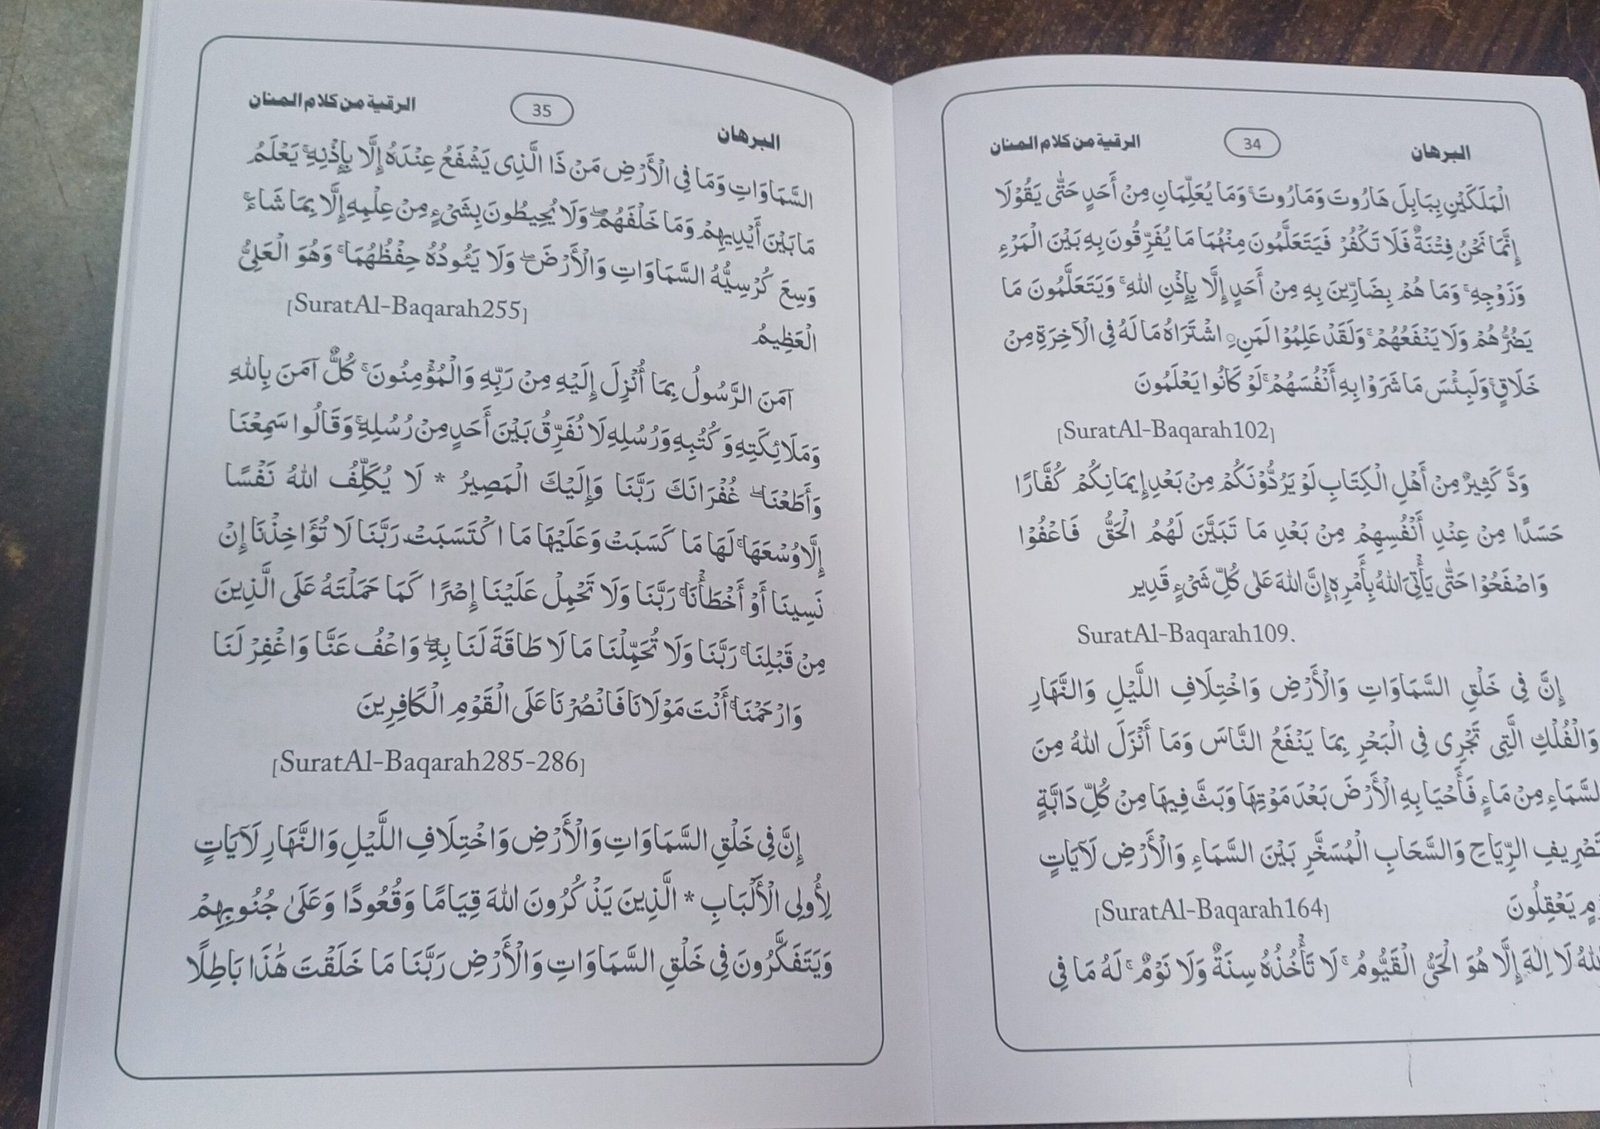 البرهان 34 الرقية من كلام المنان
الْمَلَكَيْنِ بِبَابِلَ هَارُوتَ وَمَارُوتَ ۚ وَمَا يُعَلِّمَانِ مِنْ أَحَدٍ حَتَّىٰ يَقُولَا
إِنَّمَا نَحْنُ فِتْنَةٌ فَلَا تَكْفُرْ فَيَتَعَلَّمُونَ مِنْهُمَا مَا يُفَرِّقُونَ بِهِ بَيْنَ الْمَرْءِ
وَزَوْجِهِ ۚ وَمَا هُمْ بِضَارِّينَ بِهِ مِنْ أَحَدٍ إِلَّا بِإِذْنِ اللهِ ۚ وَيَتَعَلَّمُونَ مَا
يَضُرُّهُمْ وَلَا يَنْفَعُهُمْ ۚ وَلَقَدْ عَلِمُوا لَمَنِ اشْتَرَاهُ مَا لَهُ فِي الْآخِرَةِ مِنْ
خَلَاقٍ ۚ وَلَبِئْسَ مَا شَرَوْا بِهِ أَنْفُسَهُمْ ۚ لَوْ كَانُوا يَعْلَمُونَ
[SuratAl-Baqarah102]
وَدَّ كَثِيرٌ مِنْ أَهْلِ الْكِتَابِ لَوْ يَرُدُّونَكُمْ مِنْ بَعْدِ إِيمَانِكُمْ كُفَّارًا
حَسَدًا مِنْ عِنْدِ أَنْفُسِهِمْ مِنْ بَعْدِ مَا تَبَيَّنَ لَهُمُ الْحَقُّ فَاعْفُوْا
وَاصْفَحُوْا حَتَّىٰ يَأْتِيَ اللهُ بِأَمْرِهِ إِنَّ اللهَ عَلىٰ كُلِّ شَيْءٍ قَدِير
SuratAl-Baqarah109.
إِنَّ فِي خَلْقِ السَّمَاوَاتِ وَالْأَرْضِ وَاخْتِلَافِ اللَّيْلِ وَالنَّهَارِ
وَالْفُلْكِ الَّتِي تَجْرِي فِي الْبَحْرِ بِمَا يَنْفَعُ النَّاسَ وَمَا أَنْزَلَ اللهُ مِنَ
السَّمَاءِ مِنْ مَاءٍ فَأَحْيَا بِهِ الْأَرْضَ بَعْدَ مَوْتِهَا وَبَثَّ فِيهَا مِنْ كُلِّ دَابَّةٍ
تَصْرِيفِ الرِّيَاحِ وَالسَّحَابِ الْمُسَخَّرِ بَيْنَ السَّمَاءِ وَالْأَرْضِ لَآيَاتٍ
يَعْقِلُونَ [SuratAl-Baqarah164]
اللهُ لَا إِلٰهَ إِلَّا هُوَ الْحَيُّ الْقَيُّومُ ۚ لَا تَأْخُذُهُ سِنَةٌ وَلَا نَوْمٌ ۚ لَهُ مَا فِي
البرهان 35 الرقية من كلام المنان
السَّمَاوَاتِ وَمَا فِي الْأَرْضِ مَنْ ذَا الَّذِي يَشْفَعُ عِنْدَهُ إِلَّا بِإِذْنِهِ ۚ يَعْلَمُ
مَا بَيْنَ أَيْدِيهِمْ وَمَا خَلْفَهُمْ ۖ وَلَا يُحِيطُونَ بِشَيْءٍ مِنْ عِلْمِهِ إِلَّا بِمَا شَاءَ ۚ
وَسِعَ كُرْسِيُّهُ السَّمَاوَاتِ وَالْأَرْضَ ۖ وَلَا يَئُودُهُ حِفْظُهُمَا ۚ وَهُوَ الْعَلِيُّ
الْعَظِيمُ [SuratAl-Baqarah255]
آمَنَ الرَّسُولُ بِمَا أُنْزِلَ إِلَيْهِ مِنْ رَبِّهِ وَالْمُؤْمِنُونَ ۚ كُلٌّ آمَنَ بِاللهِ
وَمَلَائِكَتِهِ وَكُتُبِهِ وَرُسُلِهِ لَا نُفَرِّقُ بَيْنَ أَحَدٍ مِنْ رُسُلِهِ ۚ وَقَالُوا سَمِعْنَا
وَأَطَعْنَا ۖ غُفْرَانَكَ رَبَّنَا وَإِلَيْكَ الْمَصِيرُ * لَا يُكَلِّفُ اللهُ نَفْسًا
إِلَّا وُسْعَهَا ۚ لَهَا مَا كَسَبَتْ وَعَلَيْهَا مَا اكْتَسَبَتْ رَبَّنَا لَا تُؤَاخِذْنَا إِنْ
نَسِينَا أَوْ أَخْطَأْنَا ۚ رَبَّنَا وَلَا تَحْمِلْ عَلَيْنَا إِصْرًا كَمَا حَمَلْتَهُ عَلَى الَّذِينَ
مِنْ قَبْلِنَا ۚ رَبَّنَا وَلَا تُحَمِّلْنَا مَا لَا طَاقَةَ لَنَا بِهِ ۖ وَاعْفُ عَنَّا وَاغْفِرْ لَنَا
وَارْحَمْنَا ۚ أَنْتَ مَوْلَانَا فَانْصُرْنَا عَلَى الْقَوْمِ الْكَافِرِينَ
[SuratAl-Baqarah285-286]
إِنَّ فِي خَلْقِ السَّمَاوَاتِ وَالْأَرْضِ وَاخْتِلَافِ اللَّيْلِ وَالنَّهَارِ لَآيَاتٍ
لِأُولِي الْأَلْبَابِ * الَّذِينَ يَذْكُرُونَ اللهَ قِيَامًا وَقُعُودًا وَعَلَىٰ جُنُوبِهِمْ
وَيَتَفَكَّرُونَ فِي خَلْقِ السَّمَاوَاتِ وَالْأَرْضِ رَبَّنَا مَا خَلَقْتَ هَٰذَا بَاطِلًا